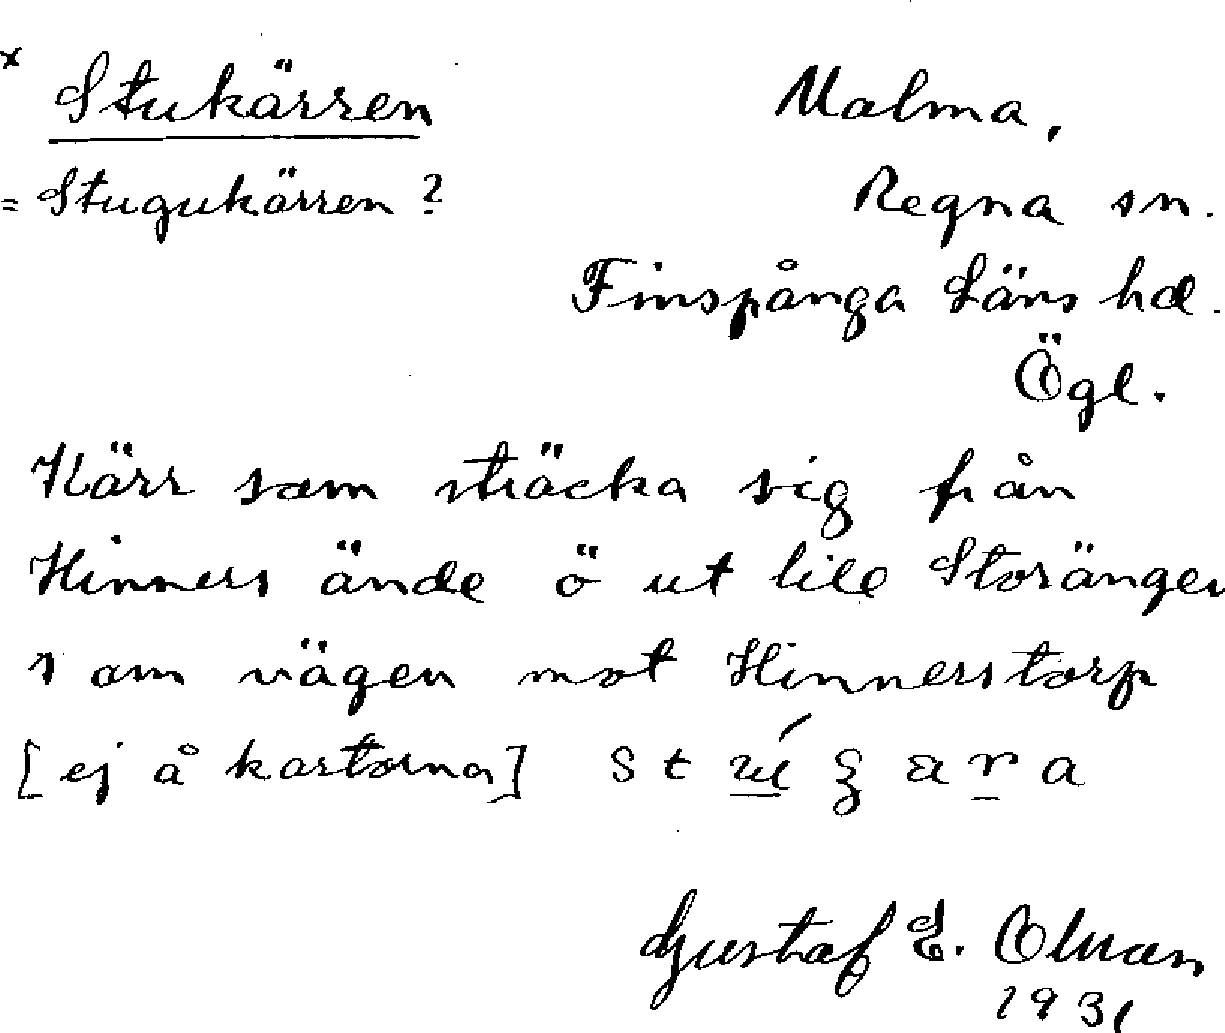 x Stukärren
= Stugukärren?
Malma,
Regna sn.
Finspånga Läns hd.
Ögl.
Kärr som sträcka sig från
Hinners ände ö ut till Storängen
s om vägen mot Hinnerstorp
[ej å kartorna]
Gustaf E. Olson
1931